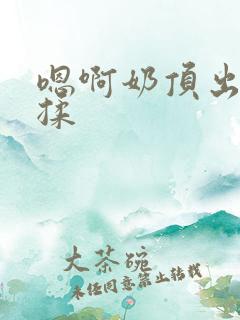 嗯啊奶頂出
揉
大茶碗
未经同意禁止转载